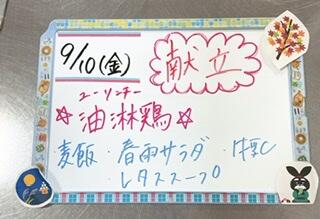 9/10(金)
献立
ユーリンチー
☆油淋鶏☆
麦飯・春雨サラダ・牛乳
レタススープ